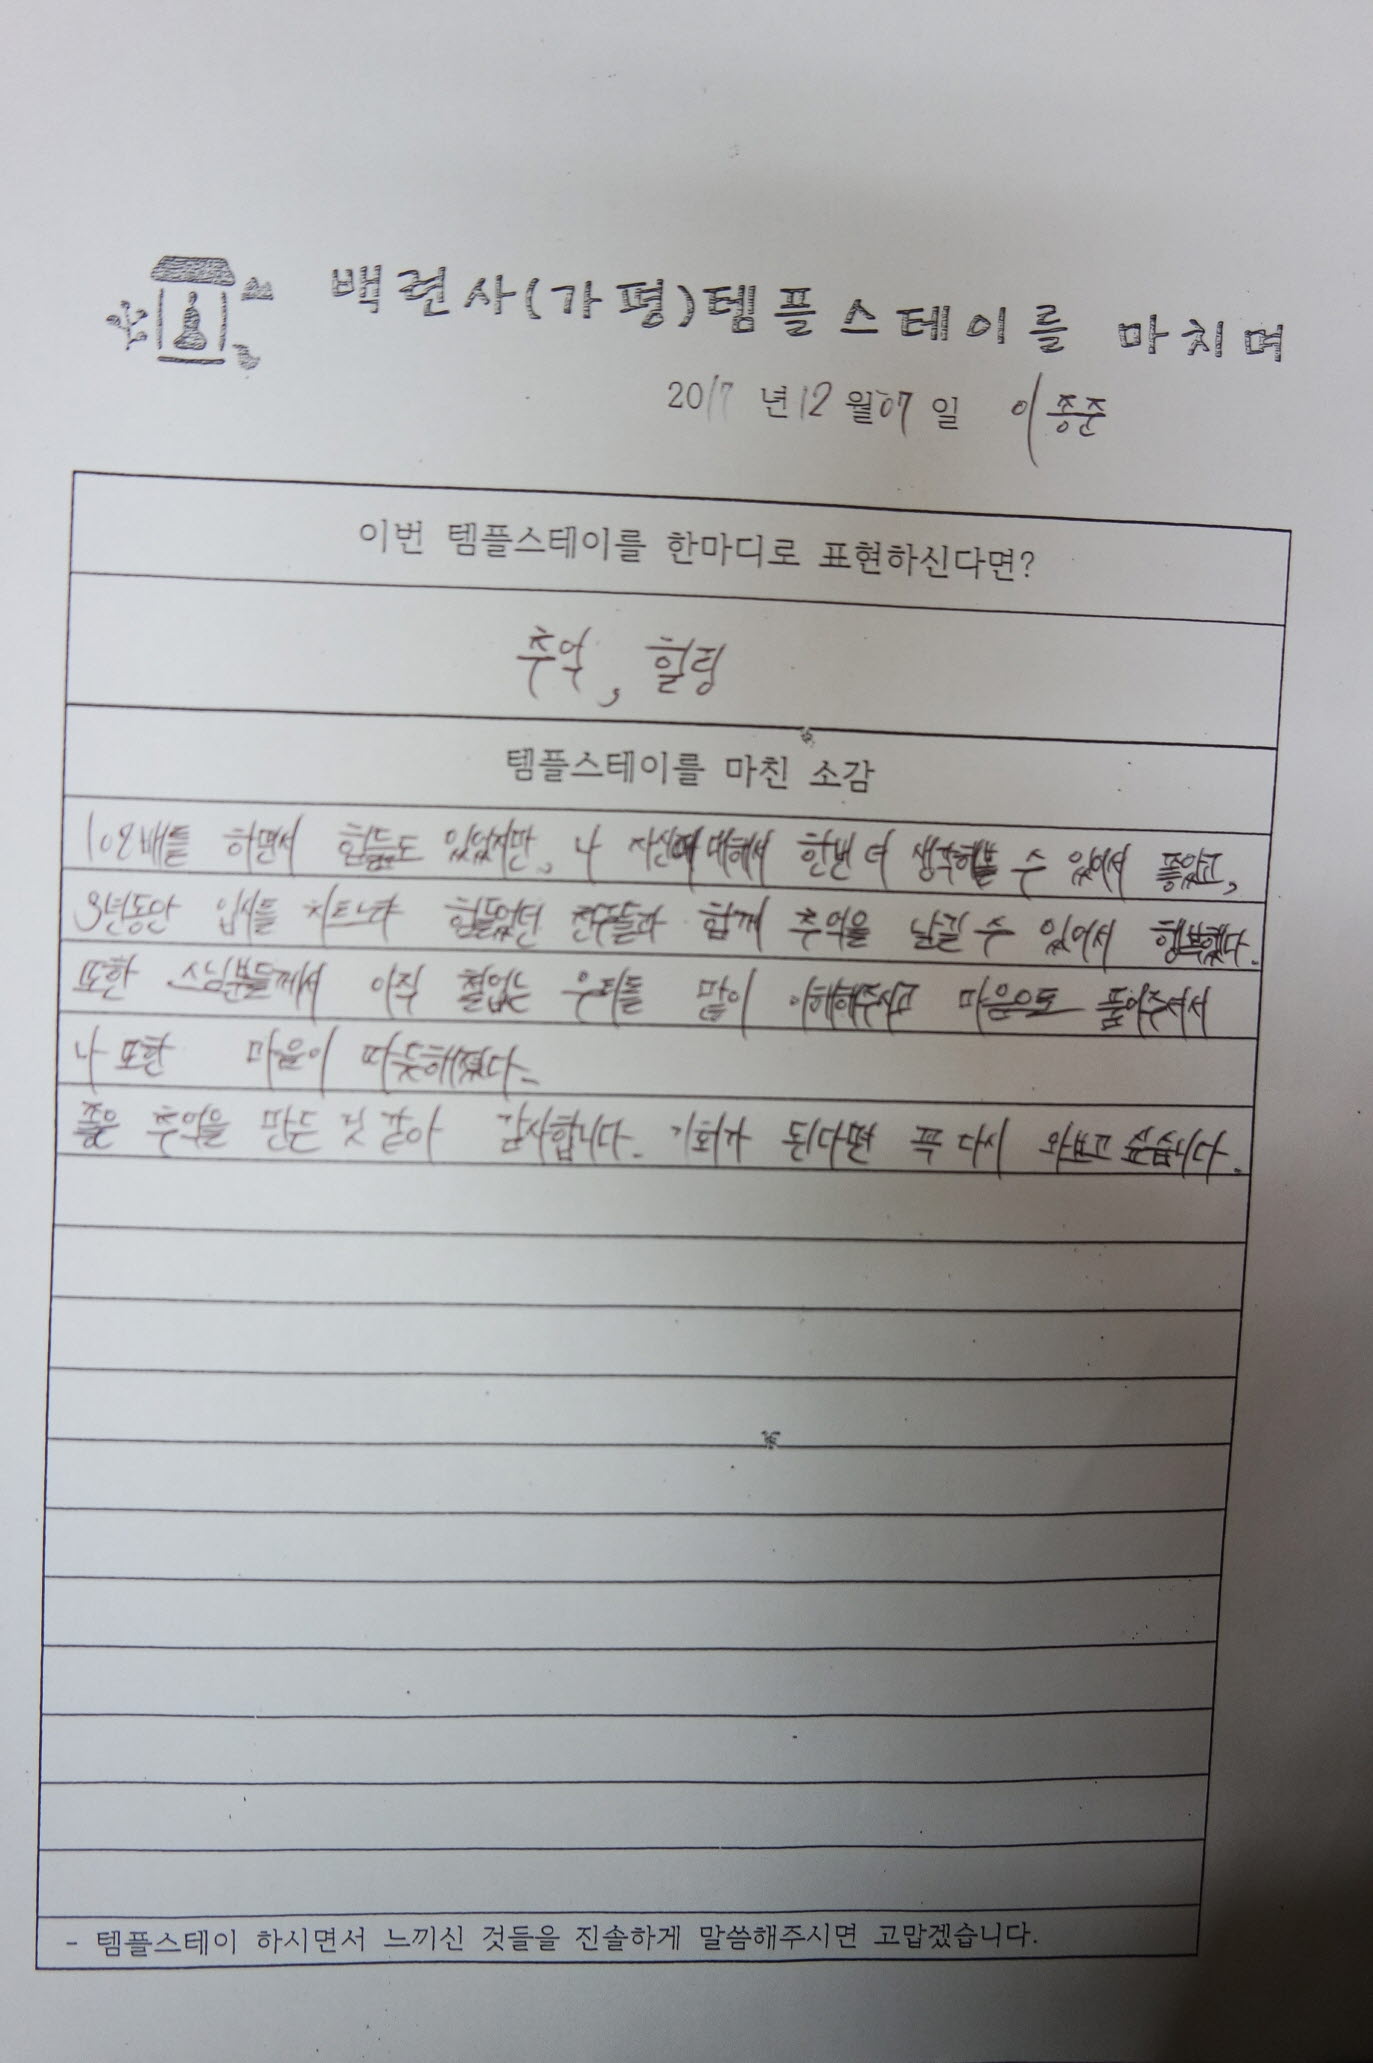 백련사(가평)템플스테이를 마치며
2017 년 12 월 07 일 이종준
이번 템플스테이를 한마디로 표현하신다면?
추억, 힐링
템플스테이를 마친 소감
108배를 하면서 힘듦도 있었지만, 나 자신에 대해서 한번 더 생각해볼 수 있어서 좋았고,
3년동안 입시를 치르느라 힘들었던 친구들과 함께 추억을 남길 수 있어서 행복했다.
또한 스님분들께서 아직 철없는 우리를 많이 이해해주시고 마음으로 품어주셔서
나 또한 마음이 따뜻해졌다.
좋은 추억을 만든 것 같아 감사합니다. 기회가 된다면 꼭 다시 와보고 싶습니다.
- 템플스테이 하시면서 느끼신 것들을 진솔하게 말씀해주시면 고맙겠습니다.